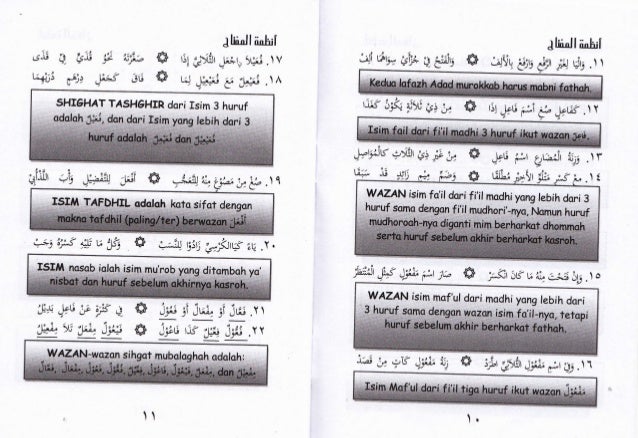 أنظمة المفتاح
١١. وَالْيَا لِغَيْرِ الرَّفْعِ وَارْفَعْ بِالْأَلِفْ ۞ وَالْفَتْحُ فِيْ جُزْأَيْ سِوَاهُمَا أُلِفْ
Kedua lafazh Adad murokkab harus mabni fathah.
١٢. كَفَاعِلٍ صُغِ اسْمَ فَاعِلٍ إِذَا ۞ مِنْ ذِيْ ثَلَاثَةٍ يَكُوْنُ كَغَذَا
Isim fail dari fi'il madhi 3 huruf ikut wazan فَاعِل.
١٣. وَزِنَةُ الْمُضَارِعِ اسْمُ فَاعِلِ ۞ مِنْ غَيْرِ ذِيْ الثَّلَاثِ كَالْمُوَاصِلِ
١٤. مَعْ كَسْرِ مَتْلُوِّ الْأَخِيْرِ مُطْلَقَا ۞ وَضَمِّ مِيْمٍ زَائِدٍ قَدْ سَبَقَا
WAZAN isim fa'il dari fi'il madhi yang lebih dari 3
huruf sama dengan fi'il mudhori'-nya, Namun huruf
mudhoroah-nya diganti mim berharkat dhommah
serta huruf sebelum akhir berharkat kasroh.
١٥. وَإِنْ فَتَحْتَ مِنْهُ مَا كَانَ انْكَسَرْ ۞ صَارَ اسْمَ مَفْعُوْلٍ كَمِثْلِ الْمُنْتَظَرْ
WAZAN isim maf'ul dari madhi yang lebih dari
3 huruf sama dengan wazan isim fa'il-nya, tetapi
huruf sebelum akhir berharkat fathah.
١٦. وَفِيْ اسْمِ مَفْعُوْلِ الثُّلَاثِيِّ اطَّرَدْ ۞ زِنَةُ مَفْعُوْلٍ كَآتٍ مِنْ قَصَدْ
Isim Maf'ul dari fi'il tiga huruf ikut wazan مَفْعُوْلٌ
١٠
أنظمة المفتاح
١٧. فُعَيْلًا اجْعَلِ الثُّلَاثِيَّ إِذَا ۞ صَغَّرْتَهُ نَحْوُ قُذَيٍّ فِيْ قَذَى
١٨. فُعَيْعِلٌ مَعَ فُعَيْعِيْلٍ لِمَا ۞ فَاقَ كَجَعْلِ دِرْهَمٍ دُرَيْهِمَا
SHIGHAT TASHGHIR dari Isim 3 huruf
adalah فُعَيْلٌ, dan dari Isim yang lebih dari 3
huruf adalah فُعَيْعِلٌ dan فُعَيْعِيْلٌ
١٩. صُغْ مِنْ مَصُوْغٍ مِنْهُ لِلتَّعَجُّبِ ۞ أَفْعَلَ لِلتَّفْضِيْلِ وَأْبَ اللَّذْ أُبِيْ
ISIM TAFDHIL adalah kata sifat dengan
makna tafdhil (paling/ter) berwazan أَفْعَلُ
٢٠. يَاءً كَيَا الْكُرْسِيِّ زَادُوْا لِلنَّسَبْ ۞ وَكُلُّ مَا تَلِيْهِ كَسْرُهُ وَجَبْ
ISIM nasab ialah isim mu'rob yang ditambah ya'
nisbat dan huruf sebelum akhirnya kasroh.
٢١. فَعَّالٌ أَوْ مِفْعَالٌ أَوْ فَعُوْلُ ۞ فِيْ كَثْرَةٍ عَنْ فَاعِلٍ بَدِيْلُ
٢٢. فُعُّوْلٌ فِعِّيْلٌ كَذَا فَاعُوْلٌ ۞ فَيْعُوْلٌ مِفْعَلٌ تَلَا مِفْعِيْلٌ
WAZAN-wazan sihgat mubalaghah adalah:
فَعَّالٌ, مِفْعَالٌ, فَعُوْلٌ, فُعُّوْلٌ, فِعِّيْلٌ, فَاعُوْلٌ, فَيْعُوْلٌ, مِفْعَلٌ, dan مِفْعِيْلٌ
١١